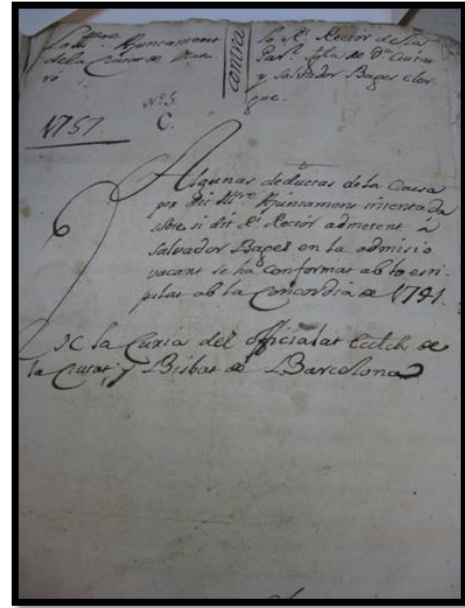 Lo Ill.tre Ajuntament
de la Ciutat de Mata-
ró
contra
lo R.t Rector de la
Par.l Isla de D.a Ciutat
y Salvador Bages cler-
gue.
Nº 5.
C.
1757.
6
Algunas deductas de la Causa
per dit Ill.tre Ajuntament intentada
sobre si dit R.t Rectór admetent á
Salvador Bages en la admisio
vacant se ha conformat ab lo esti-
pulat ab la Concordia de 1741.
De la Curia del officialat Ecclch. de
la Ciutat, y Bisbat de Barcelona